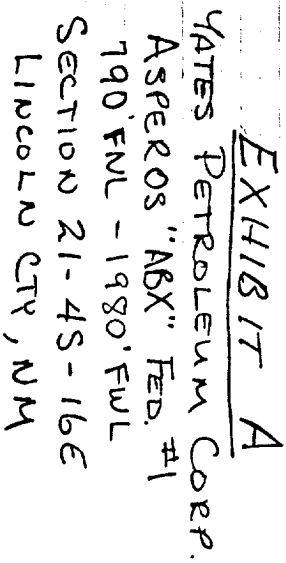 EXHIBIT A
YATES PETROLEUM CORP.
ASPEROS "ABX" FED. #1
790' FNL - 1980' FWL
SECTION 21-4S-16E
LINCOLN CTY, NM